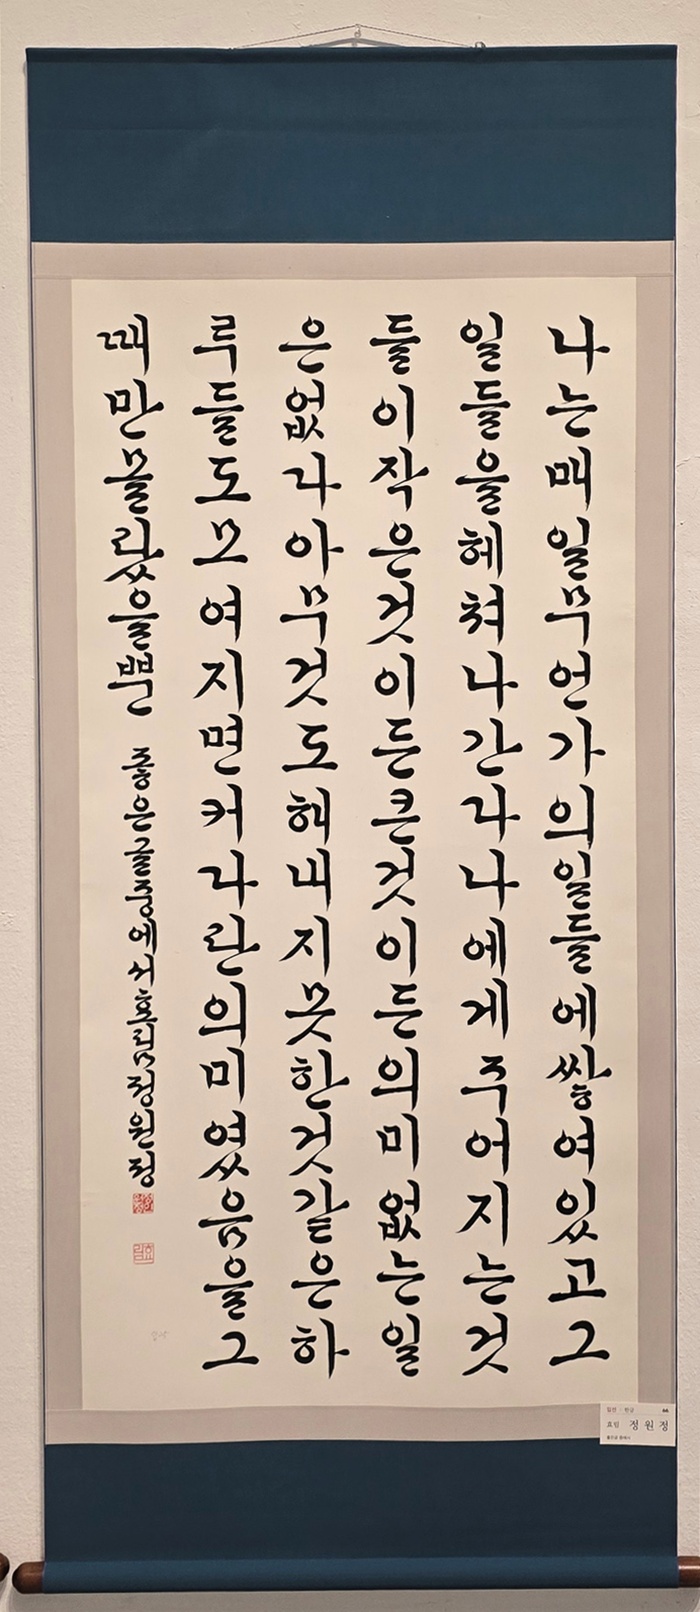 나는매일무언가의일들에쌓여있고그
일들을헤쳐나간다나에게주어지는것
들이작은것이든큰것이든의미없는일
은없다아무것도해내지못한것같은하
루들도모여지면커다란의미였음을그
때만몰랐을뿐 좋은글중에서효림정원정
입선 · 한글 66
효림 정원정
좋은글 중에서